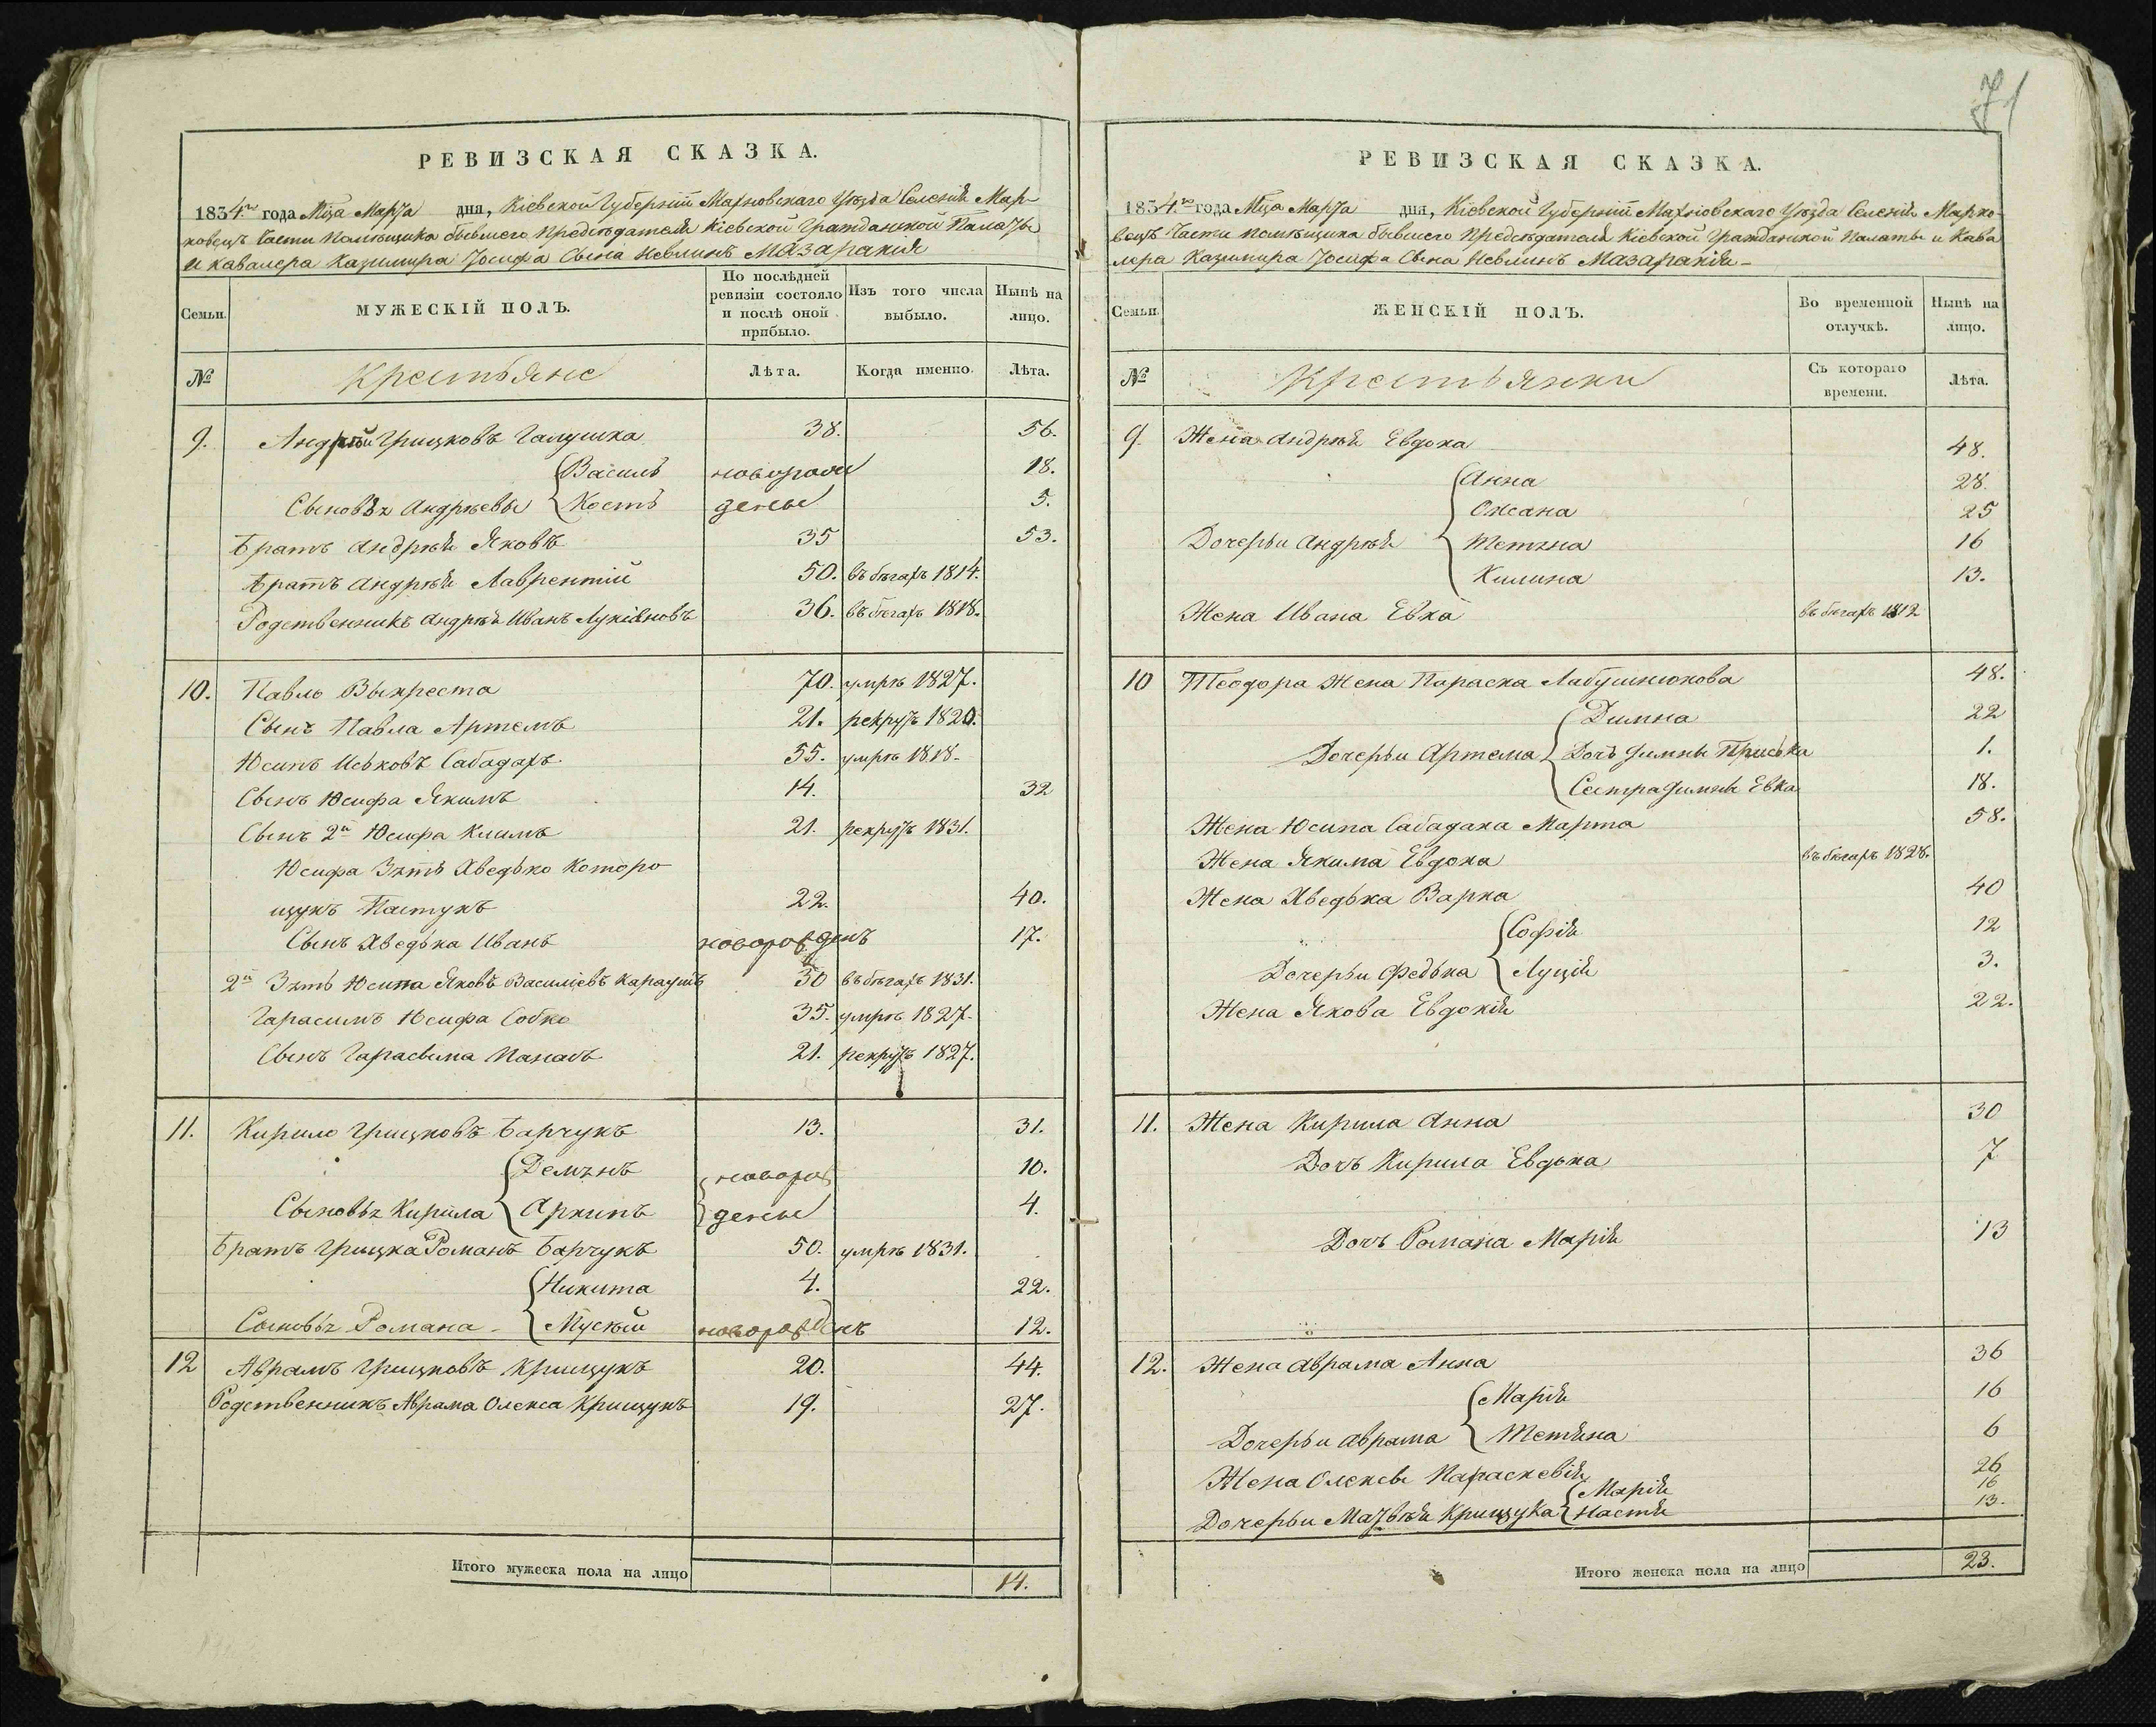 РЕВИЗСКАЯ СКАЗКА.
1834го года Мца Марта дня, Кіевской Губерніи Махновскаго Уѣзда Селенія Мар-
ковецъ Части Помѣщика бывшего Предсѣдателя Кіевской Гражданской Палаты
и кавалера Казимира Іосифа Сына Невлинъ Мазаракія
Семьи.
МУЖЕСКІЙ ПОЛЪ.
По послѣдней
ревизіи состояло
и послѣ оной
прибыло.
Изъ того числа
выбыло.
Нынѣ на
лицо.
№ Крестьяне Лѣта. Когда именно. Лѣта.
9. Андрѣй Грицковъ Галушка 38. 56.
Василь новорож 18.
Сыновья Андрѣевы Кость денные 5.
Братъ Андрѣя Яковъ 35 53.
Братъ Андрѣя Лаврентій 50. въ бѣгахъ 1814.
Родственникъ Андрѣя Иванъ Лукіяновъ 36. въ бѣгахъ 1818.
10. Павло Выкреста 70. умре 1827.
Сынъ Павла Артемъ 21. рекрутъ 1820.
Юсипъ Иськовъ Сабадахъ 55. умре 1818.
Сынъ Юсифа Якимъ 14. 32
Сынъ 2й Юсифа Климъ 21. рекрутъ 1831.
Юсифа Зять Хведько Которо
щукъ Пастухъ 22. 40.
Сынъ Хведька Иванъ новорожденъ 17.
2й Зять Юсипа Яковъ Василіевъ Караушъ 30 въ бѣгахъ 1831.
Гарасимъ Юсифа Собко 35. умре 1827.
Сынъ Гарасыма Панасъ 21. рекрутъ 1827.
11. Кирило Грицковъ Барчукъ 13. 31.
Демянъ новорож 10.
Сыновья Кирила Архипъ денные 4.
Братъ Грицка Романъ Барчукъ 50. умре 1831.
Никита 4. 22.
Сыновья Романа Мусѣй новорожденъ 12.
12 Аврамъ Грицковъ Крищукъ 20. 44.
Родственникъ Аврама Олекса Крищукъ 19. 27.
Итого мужеска пола на лицо 14.
71
РЕВИЗСКАЯ СКАЗКА.
1834го года Мца Марта дня, Кіевской Губерніи Махновскаго Уѣзда Селенія Марко-
вецъ Части помѣщика бывшего Предсѣдателя Кіевской Гражданской Палаты и Кава
лера Казимира Іосифа Сына Невлинъ Мазаракія
Семьи.
ЖЕНСКІЙ ПОЛЪ.
Во временной
отлучкѣ.
Нынѣ на
лицо.
№ Крестьянки Съ котораго
времени. Лѣта.
9 Жена Андрѣя Евдоха 48.
Анна 28.
Оксана 25
Дочерьи Андрѣя Тетяна 16
Килина 13.
Жена Ивана Евка въ бѣгахъ 1812
10 Теодора Жена Параска Лабушнюкова 48.
Димна 22
Дочерьи Артема Дочъ Димны Приська 1.
Сестра Димны Евка 18.
Жена Юсипа Сабадаха Марта 58.
Жена Якима Евдоха въ бѣгахъ 1828.
Жена Хведька Варка 40
Софія 12
Дочерьи Федька Луція 3.
Жена Якова Евдокія 22.
11. Жена Кирила Анна 30
Дочъ Кирила Евдоха 7
Дочъ Романа Марія 13
12. Жена Аврама Анна 36
Марія 16
Дочерьи Аврама Тетяна 6
Жена Олексы Параскевія 26
Марія 16
Дочерьи Матвѣя Крищука Настя 13.
Итого женска пола на лицо 23.